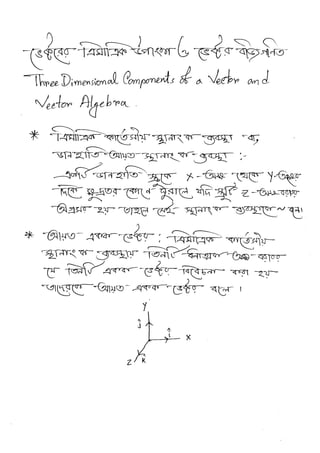 ভেক্টরের ত্রিমাত্রিক উপাংশ ও ভেক্টর বীজগণিত
Three Dimensional Components of a Vector and
Vector Algebra.
* ত্রিমাত্রিক কার্তেসীয় স্থানাংক ব্যবস্থা বা,
ডানহাতি আয়ত স্থানাংক ব্যবস্থা :-
একটি ডানহাতি স্ক্রুকে X-অক্ষ থেকে Y-অক্ষের
দিকে ক্ষুদ্রতর কোণে ঘুরালে যদি স্ক্রুটি Z-অক্ষ বরাবর
অগ্রসর হয় তাহলে সেই স্থানাংক ব্যবস্থাকে ~ বলে।
* আয়ত একক ভেক্টর : ত্রিমাত্রিক কার্তেসীয়
স্থানাংক ব্যবস্থায় তিনটি ধনাত্মক অক্ষ বরাবর
যে তিনটি একক ভেক্টর বিবেচনা করা হয়
তাদেরকে আয়ত একক ভেক্টর বলে ।
Y
j
i
X
Z
k